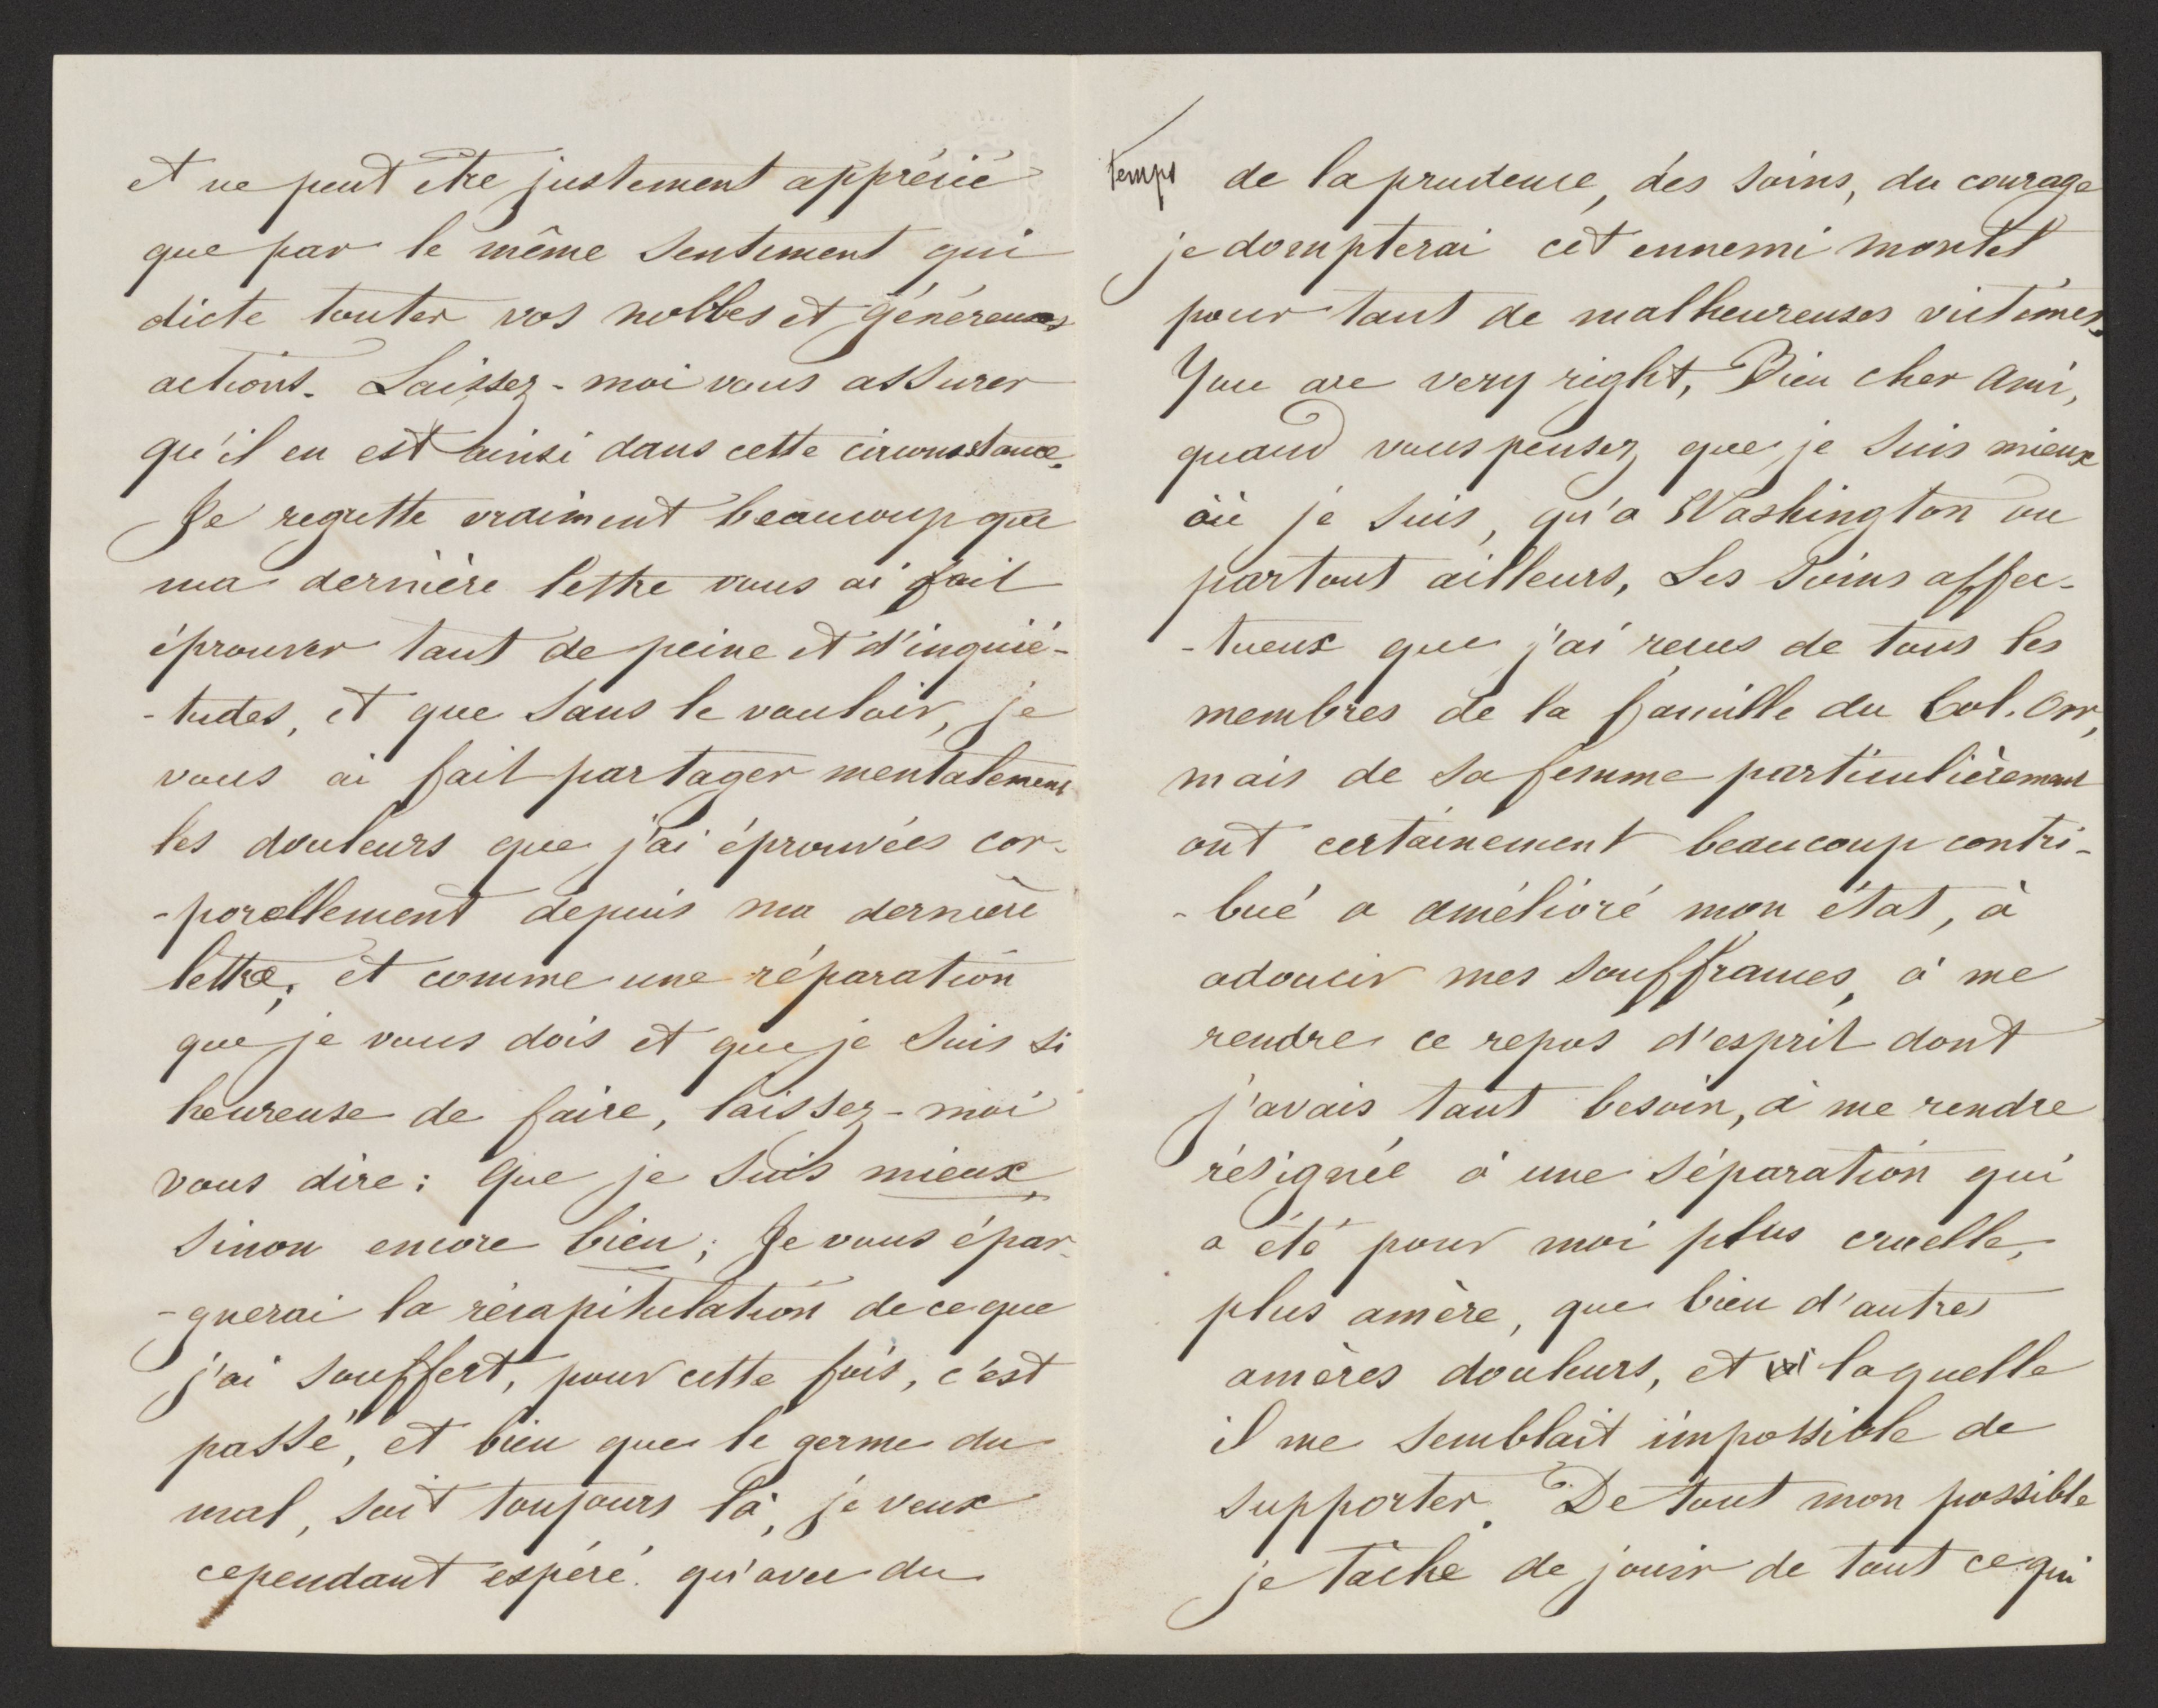 et ne peut être justement apprécié
que par le même sentiment qui
dicte toutes vos nobles et généreuses
actions. Laissez-moi vous assurer
qu'il en est ainsi dans cette circonstance.
Je regrette vraiment beaucoup que
ma dernière lettre vous ai fait
éprouver tant de peine et d'inquié-
-tudes, et que sans le vouloir, je
vous ai fait partager mentalement
les douleurs que j'ai éprouvées cor-
-porellement depuis ma dernière
lettre, et comme une réparation
que je vous dois et que je suis si
heureuse de faire, laissez-moi
vous dire: Que je suis mieux,
sinon encore bien; Je vous épar-
-gnerai la récapitulation de ce que
j'ai souffert, pour cette fois, c'est
passé, et bien que le germe du
mal, soit toujours là, je veux
cependant espéré. qu'avec du
temps de la prudence, des soins, du courage
je dompterai cet ennemi mortel
pour tant de malheureuses victimes.
You are very right, Bien cher ami,
quand vous pensez que je suis mieux
où je suis, qu'a Washington ou
partout ailleurs, Les soins affec-
-tueux que j'ai reçus de tous les
membres de la famille du Col. Orr,
mais de sa femme particulièrement
ont certainement beaucoup contri-
-bué a amélioré mon état, à
adoucir mes souffrances, à me
rendre ce repos d'esprit dont
j'avais tant besoin, à me rendre
résignée à une séparation qui
a été pour moi plus cruelle,
plus amère, que bien d'autres
amères douleurs, et laquelle
il me semblait impossible de
supporter. De tout mon possible
je tâche de jouir de tout ce qui